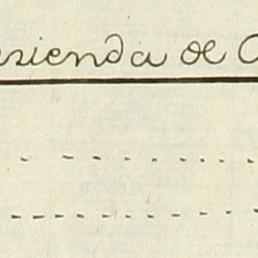 azienda de